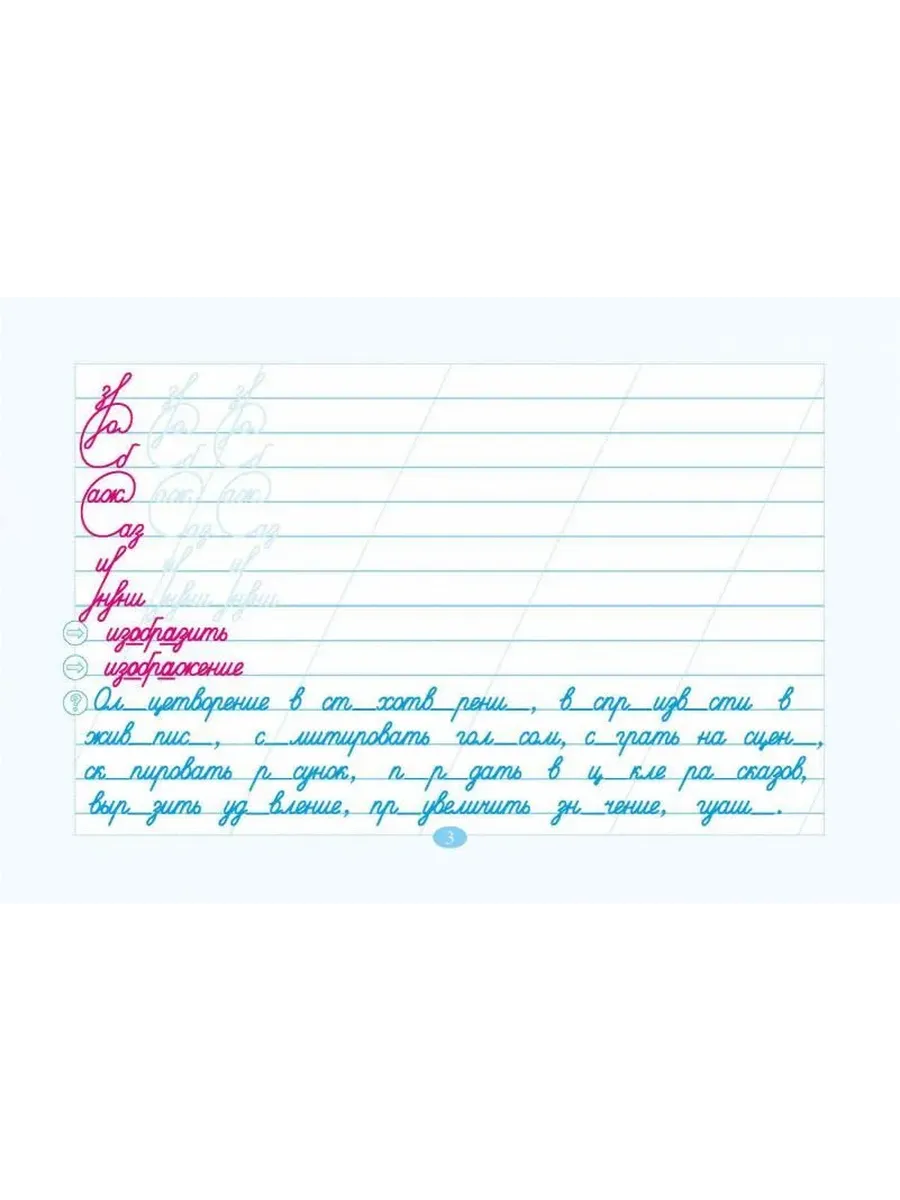 зв
за
об
аж
аз
ив
нвни
изобразить
изображение
Ол_цетворение в ст_хотв_рени_, в_спр_изв_сти в
жив_пис_, с_митировать гол_сом, с_грать на сцен_,
ск_пировать р_сунок, п_р_дать в ц_кле ра_сказов,
выр_зить уд_вление, пр_увеличить зн_чение, гуаш_.
3